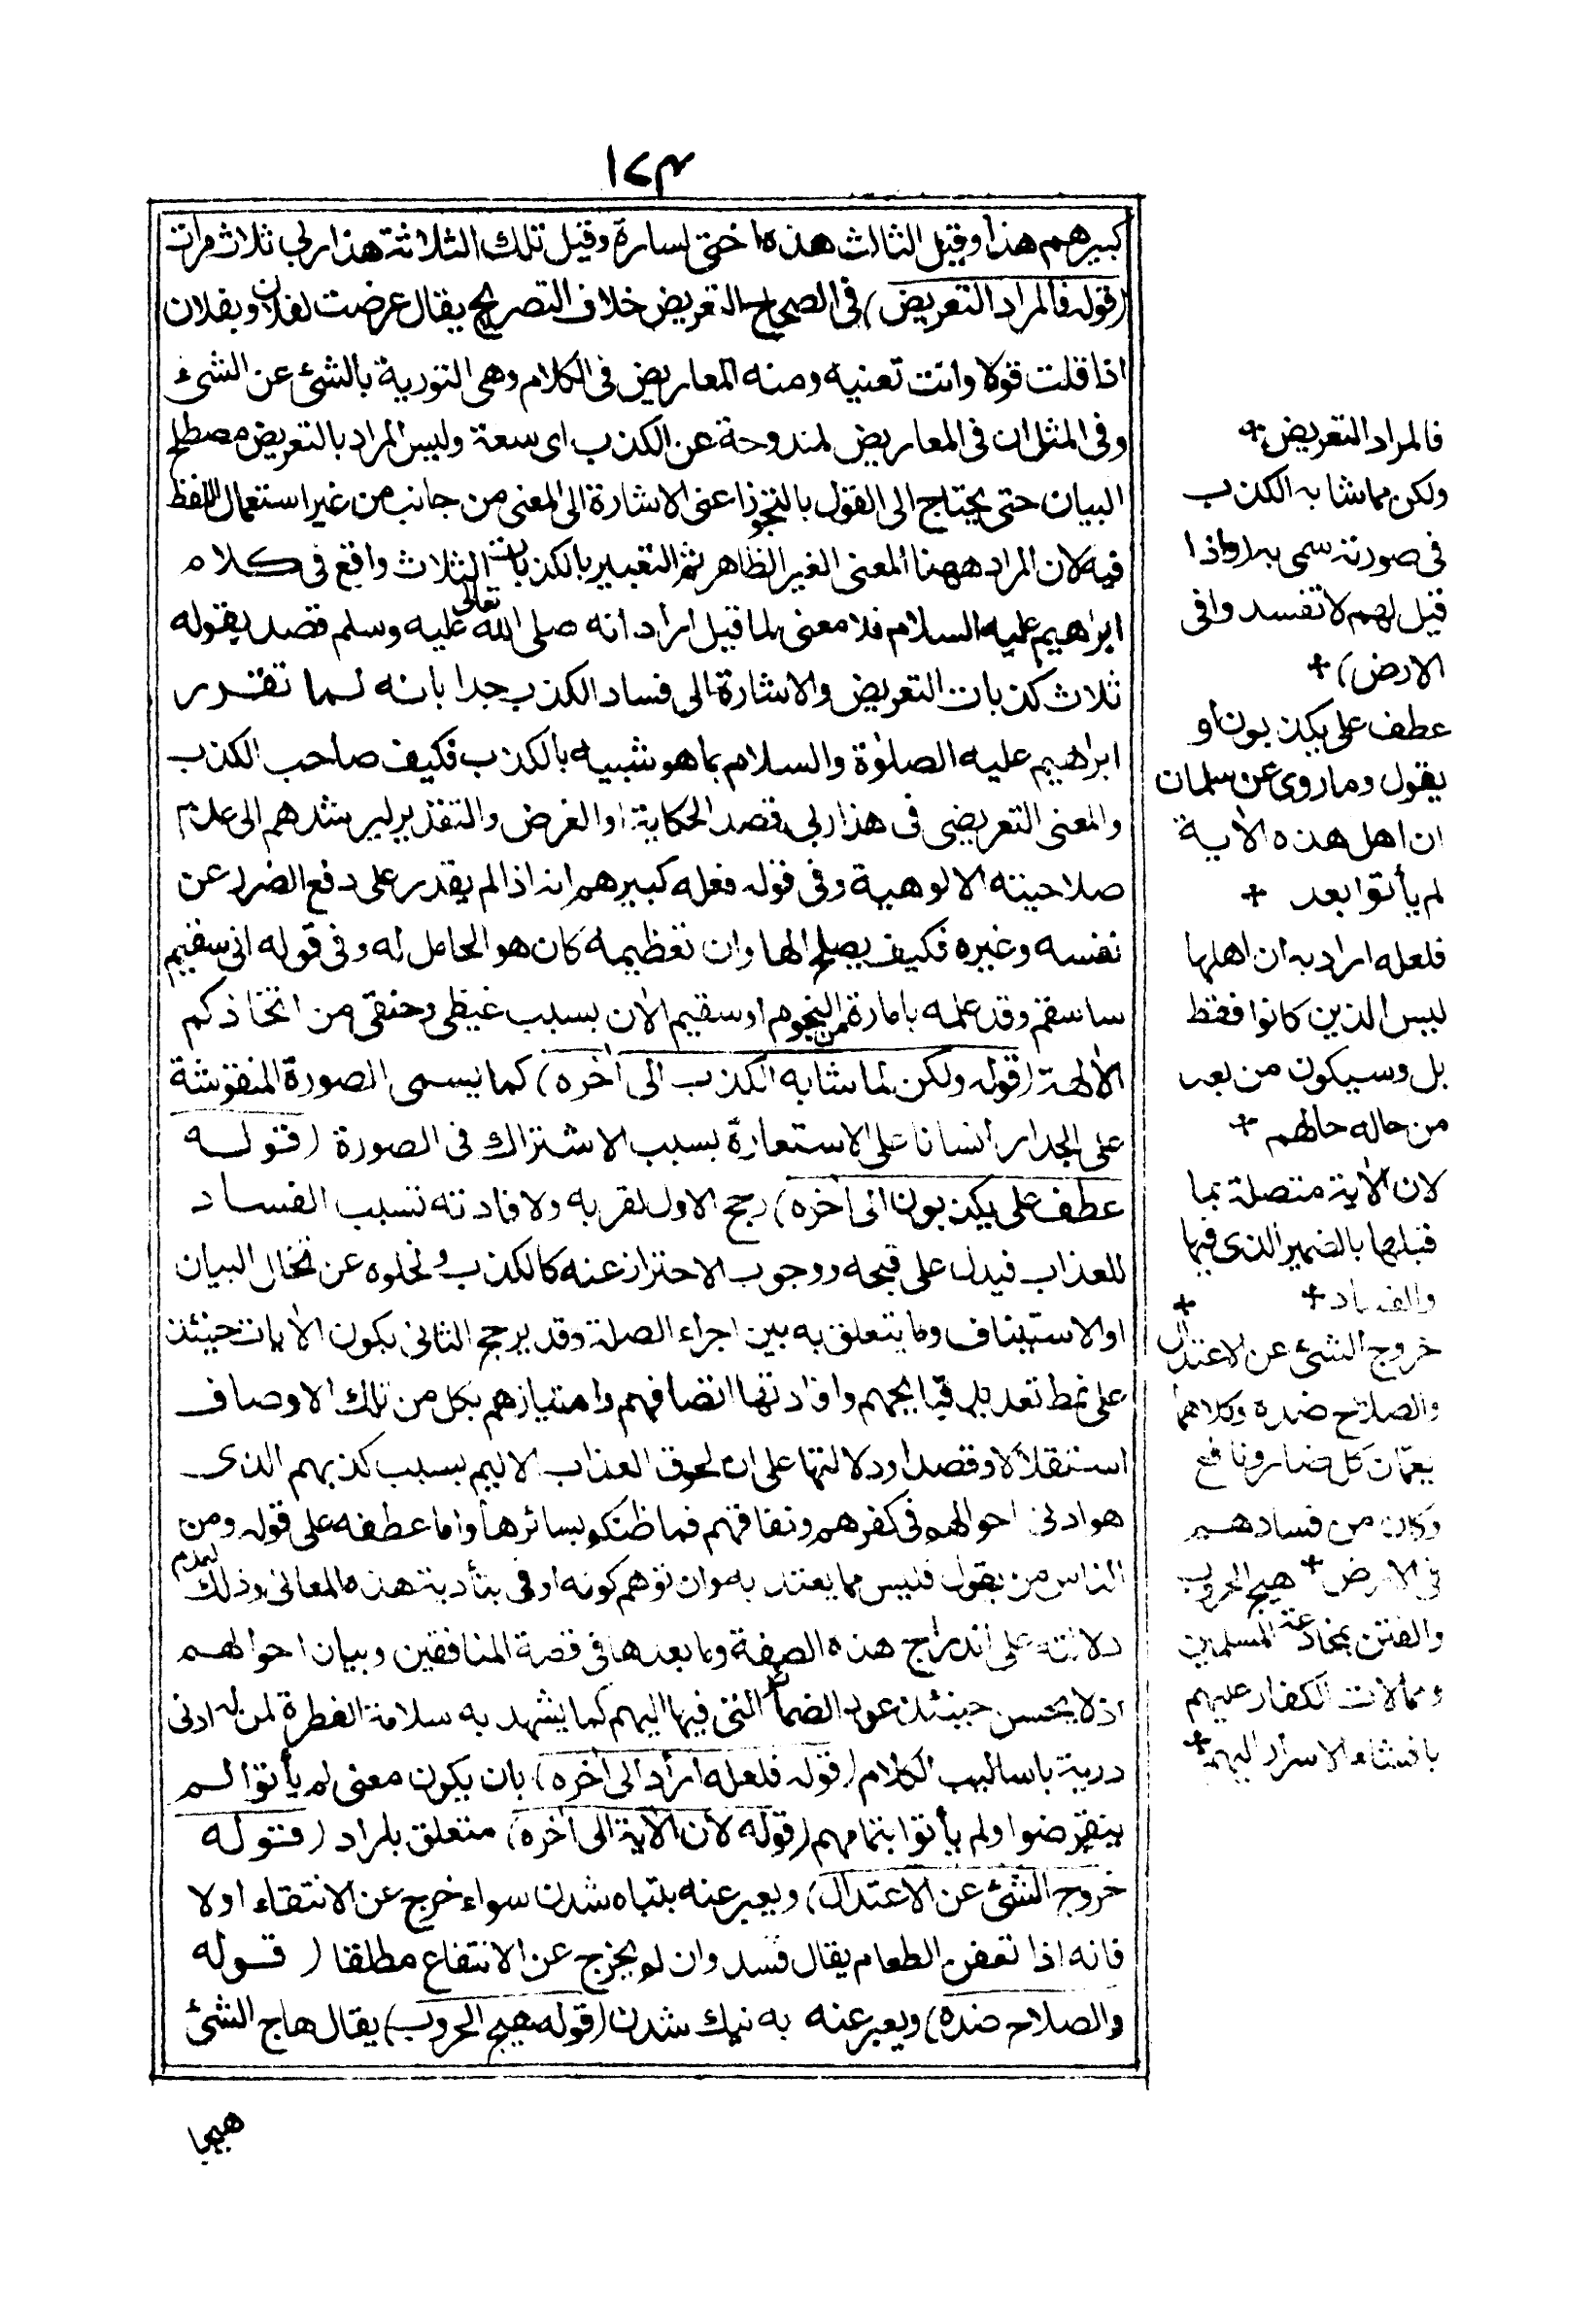 ١٧٣
كبيرهم هذا وقيل الثالث هذه اختى لسارة وقيل تلك الثلاثة هذا ربى ثلاث مرات
(قوله فالمراد التعريض) فى الصحاح التعريض خلاف التصريح يقال عرضت لفلان وبفلان
اذا قلت قولا وانت تعنيه ومنه المعاريض فى الكلام وهى التورية بالشئ عن الشئ
وفى المثل ان فى المعاريض لمندوحة عن الكذب اى سعة وليس المراد بالتعريض مصطلح
البيان حتى يحتاج الى القول بالتجوز اعنى الاشارة الى المعنى من جانب من غير استعمال اللفظ
فيه لان المراد ههنا المعنى الغير الظاهر ثم التعبير بالكذبات الثلاث واقع فى كلام
ابراهيم عليه السلام فلا معنى لما قيل اراد انه صلى الله تعالى عليه وسلم قصد بقوله
ثلاث كذبات التعريض والاشارة الى فساد الكذب جدا بانه لما تقرر
ابراهيم عليه الصلوٰة والسلام بما هو شبيه بالكذب فكيف صاحب الكذب
والمعنى التعريضى فى هذا ربى قصد الحكاية او الفرض والتقدير ليرشدهم الى عدم
صلاحيته الالوهية وفى قوله فعله كبيرهم انه اذا لم يقدر على دفع الضرر عن
نفسه وغيره فكيف يصلح الها وان تعظيمه كان هو الحامل له وفى قوله انى سقيم
ساسقم وقد علمه بامارة من النجوم او سقيم الان بسبب غيظى وحنقى من اتخاذكم
الالهة (قوله ولكن لما شابه الكذب الى آخره) كما يسمى الصورة المنقوشة
على الجدار انسانا على الاستعارة بسبب الاشتراك فى الصورة (قوله
عطف على يكذبون الى آخره) رجح الاول لقربه ولافادته تسبب الفساد
للعذاب فيدل على قبحه ووجوب الاحتراز عنه كالكذب ولخلوه عن تخلل البيان
او الاستيناف وما يتعلق به بين اجزاء الصلة وقد يرجح الثانى بكون الأيات حينئذ
على نمط تعديد قبائحهم وافادتها اتصافهم وامتيازهم بكل من تلك الاوصاف
استقلالا وقصدا ودلالتها على ان لحوق العذاب الاليم بسبب كذبهم الذى
هو ادنى احوالهم فى كفرهم ونفاقهم فما ظنكم بسائرها واما عطفه على قوله ومن
الناس من يقول فليس مما يعتد به وان توهم كونه اوفى بتأدية هذه المعانى وذلك لعدم
دلالته على اندراج هذه الصفة وما بعدها فى قصة المنافقين وبيان احوالهم
اذ لا يحسن حينئذ عود الضمائر التى فيها اليهم كما يشهد به سلامة الفطرة لمن له ادنى
دربة باساليب الكلام (قوله فلعله اراد الى آخره) بان يكون معنى لم يأتوا لم
ينقرضوا ولم يأتوا بتمامهم (قوله لأن الآية الى آخره) متعلق بلمراد (قوله
خروج الشئ عن الاعتدال) ويعبر عنه بتباه شدن سواء خرج عن الانتفاء اولا
فانه اذا تعفن الطعام يقال فسد وان لم يخرج عن الانتفاع مطلقا (قوله
والصلاح ضده) ويعبر عنه به نيك شدن (قوله هيج الحروب) يقال هاج الشئ
هيجا
فالمراد التعريض +
ولكن مما شابه الكذب
فى صورته سمى به (واذا
قيل لهم لا تفسدوا فى
الارض) +
عطف على يكذبون او
يقول وما روى عن سلمان
ان اهل هذه الأية
لم يأتوا بعد +
فلعله اراد به ان اهلها
ليس الذين كانوا فقط
بل وسيكون من بعد
من حاله حالهم +
لان الأية متصلة بما
قبلها بالضمير الذى فيها
والفساد +
خروج الشئ عن الاعتدال +
والصلاح ضده وكلاهما
يعمان كل ضار ونافع
وكان من فسادهم
فى الارض + هيج الحروب
والفتن بمخادعة المسلمين
وممالات الكفار عليهم
بافشاء الاسرار اليهم +